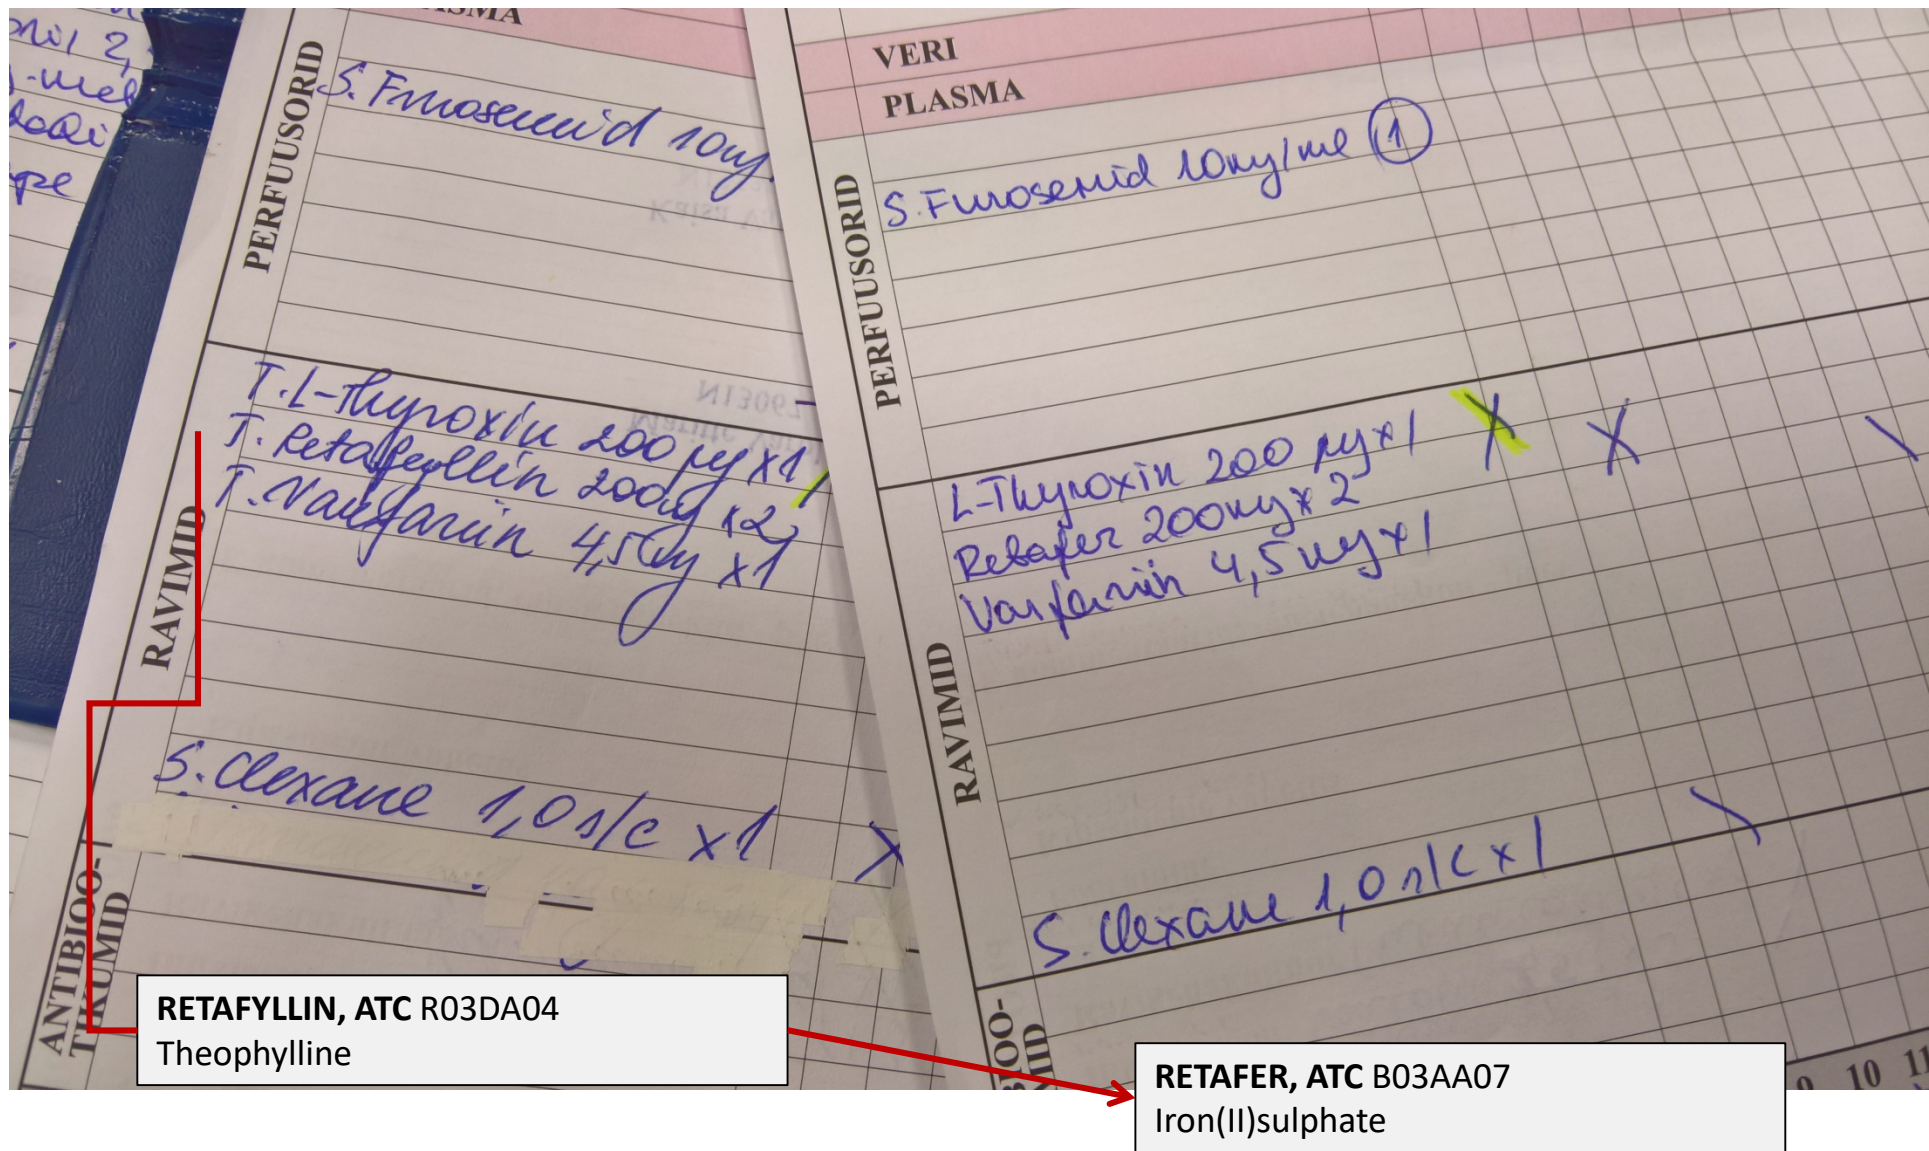 PLASMA
PERFUUSORID
S. Furosemid 10mg
RAVIMID
T. L-Thyroxin 200 µg x1
T. Retafyllin 200mg x2
T. Varfariin 4,5mg x1
S. Clexane 1,0 s/c x1
ANTIBIOO-
TIKUMID
VERI
PLASMA
PERFUUSORID
S. Furosemid 10mg/ml 1
RAVIMID
L-Thyroxin 200 µg x1
Retafer 200mg x 2
Varfariin 4,5 mg x1
S. Clexane 1,0 s/c x1
10 11
RETAFYLLIN, ATC R03DA04
Theophylline
RETAFER, ATC B03AA07
Iron(II)sulphate